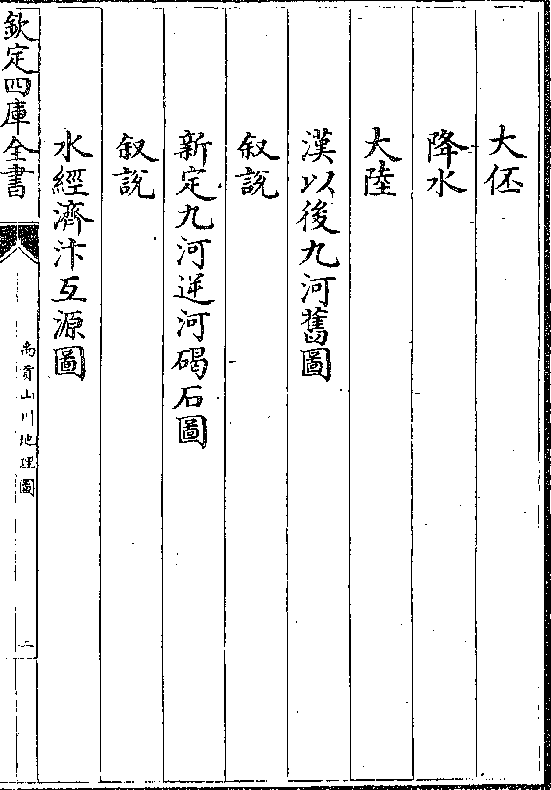 大伾
降水
大陸
漢以後九河舊圖
叙說
新定九河逆河碣石圖
叙說
水經濟汴互源圖
欽定四庫全書
禹貢山川地理圖
二